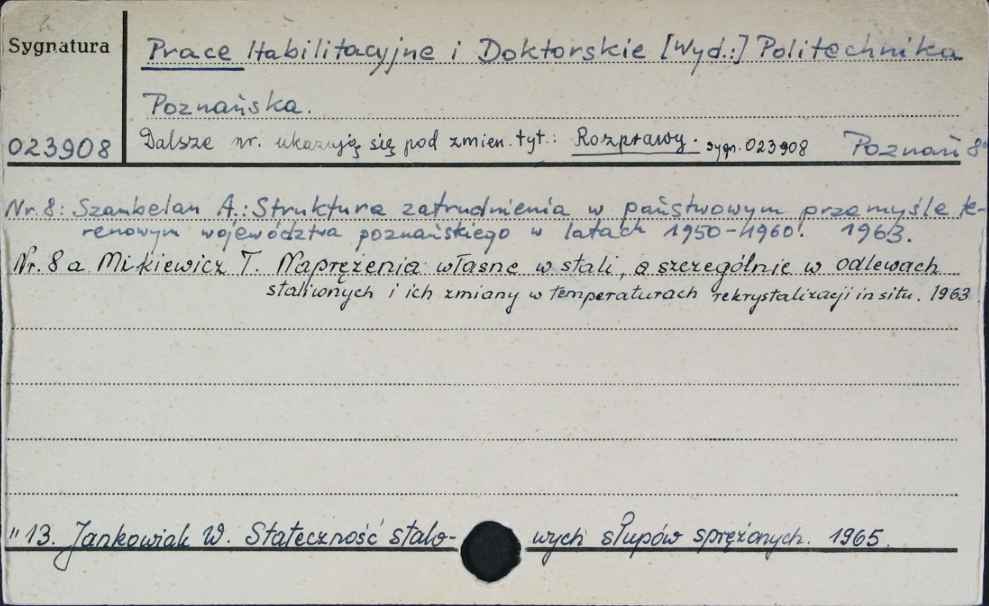 Sygnatura
Prace Habilitacyjne i Doktorskie [Wyd.:] Politechnika
Poznańska.
023908
Dalsze nr. ukazują się pod zmien. tyt.: Rozprawy. sygn. 023908 Poznań 8°
Nr. 8: Szambelan A.: Struktura zatrudnienia w państwowym przemyśle te-
renowym województwa poznańskiego w latach 1950-1960. 1963.
Nr. 8a Mikiewicz T. Naprężenia własne w stali, a szczególnie w odlewach
staliwonych i ich zmiany w temperaturach rekrystalizacji in situ. 1963
" 13. Jankowiak W. Stateczność stalo- wych słupów sprężonych. 1965.